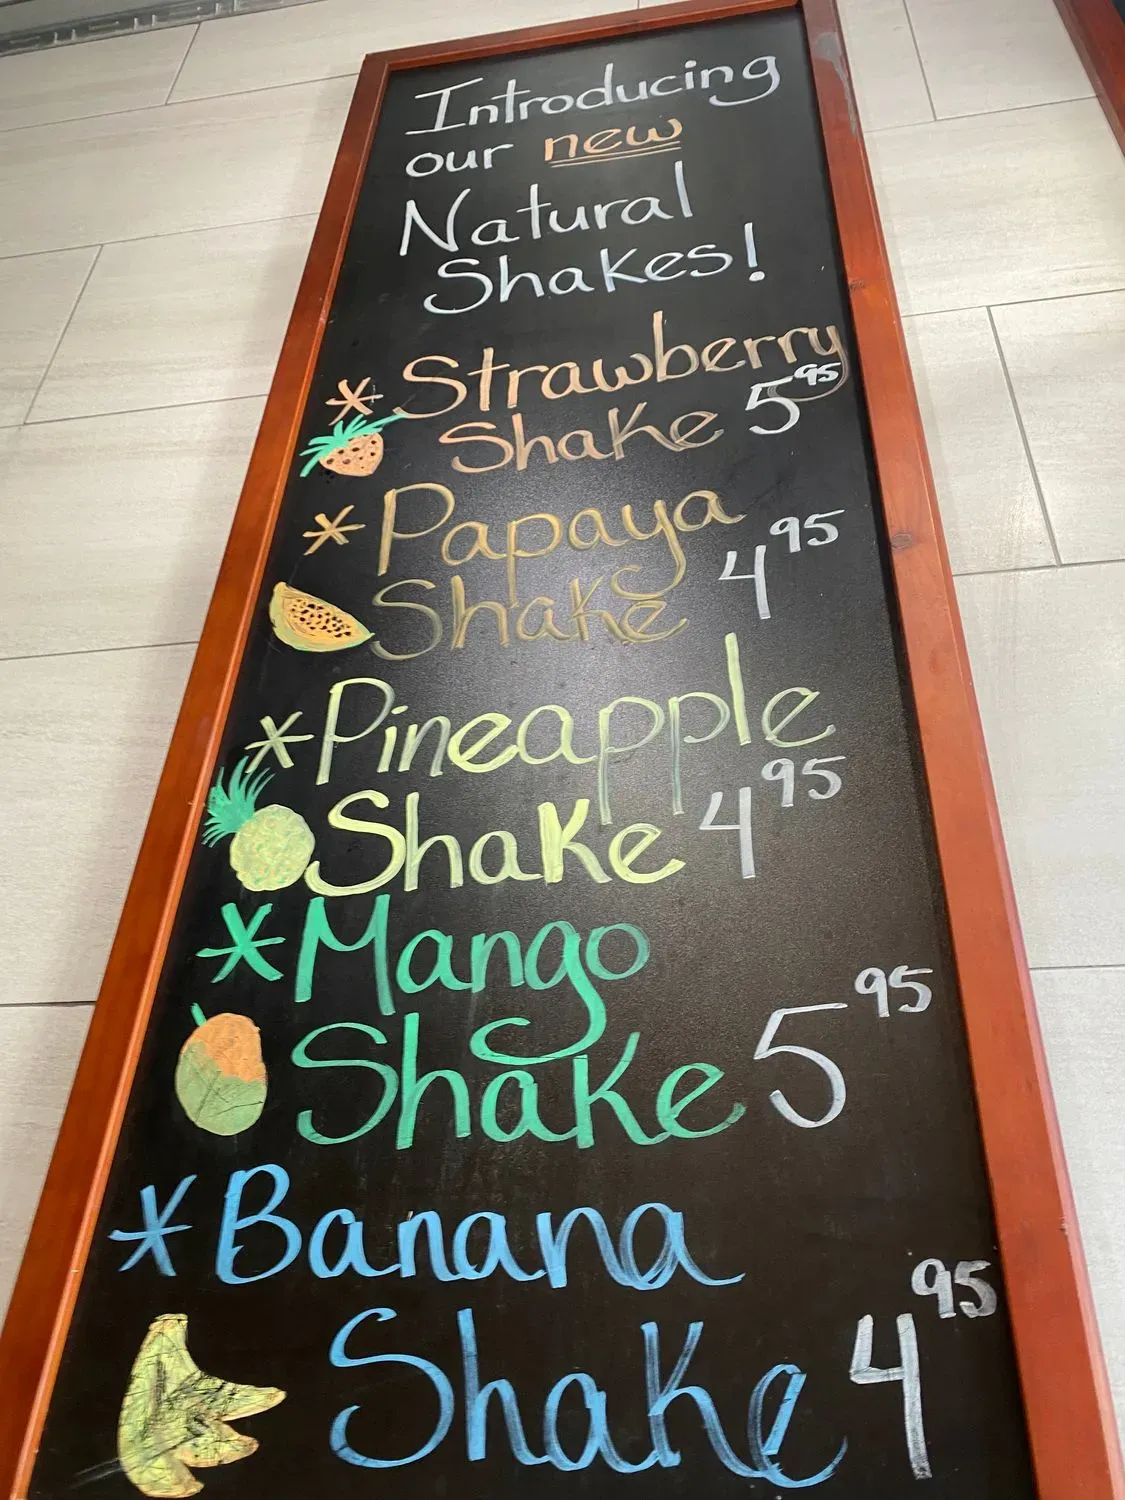 Introducing
our new
Natural
Shakes!
* Strawberry
Shake 5.95
* Papaya
Shake 4.95
* Pineapple
Shake 4.95
* Mango
Shake 5.95
* Banana
Shake 4.95